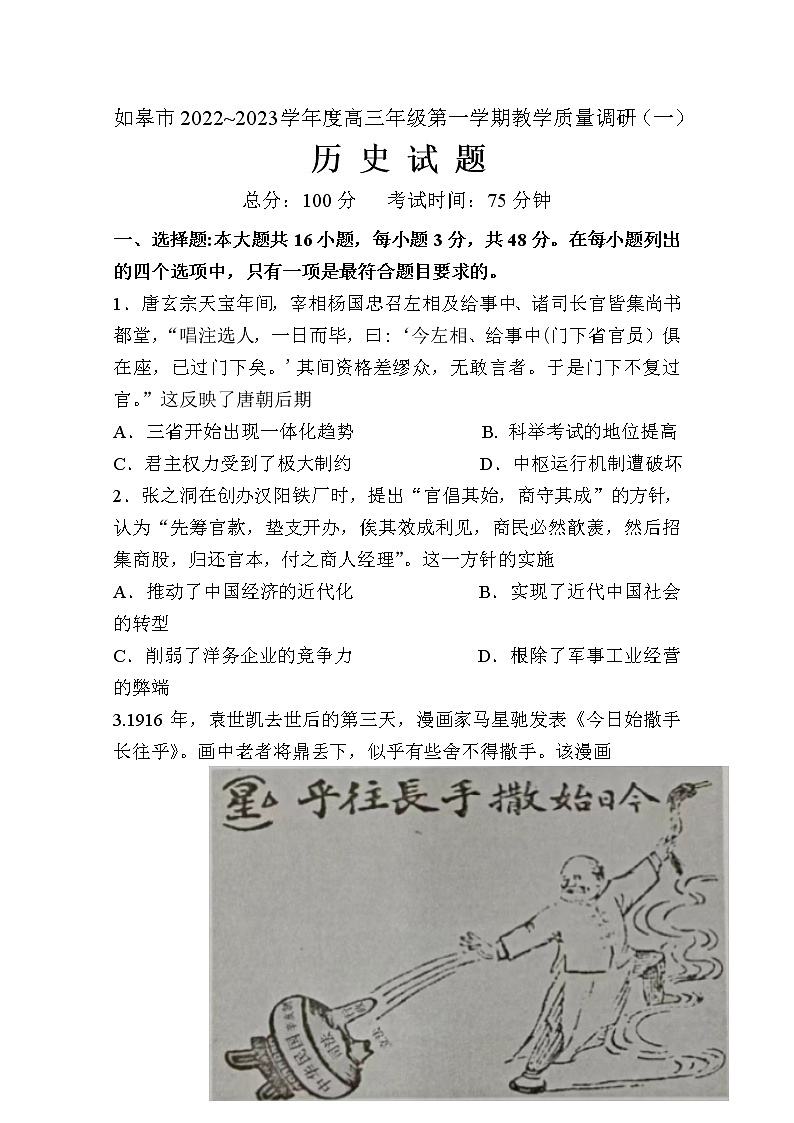 如皋市 2022~2023学年度高三年级第一学期教学质量调研（一）
历 史 试 题
总分：100 分 考试时间：75 分钟
一、选择题:本大题共 16 小题，每小题 3 分，共 48 分。在每小题列出
的四个选项中，只有一项是最符合题目要求的。
1．唐玄宗天宝年间，宰相杨国忠召左相及给事中、诸司长官皆集尚书
都堂，“唱注选人，一日而毕，曰：‘今左相、给事中(门下省官员）俱
在座，已过门下矣。’其间资格差缪众，无敢言者。于是门下不复过
官。”这反映了唐朝后期
A．三省开始出现一体化趋势 B. 科举考试的地位提高
C．君主权力受到了极大制约 D．中枢运行机制遭破坏
2．张之洞在创办汉阳铁厂时，提出“官倡其始，商守其成”的方针，
认为“先筹官款，垫支开办，俟其效成利见，商民必然歆羡，然后招
集商股，归还官本，付之商人经理”。这一方针的实施
A．推动了中国经济的近代化 B．实现了近代中国社会
的转型
C．削弱了洋务企业的竞争力 D．根除了军事工业经营
的弊端
3.1916 年，袁世凯去世后的第三天，漫画家马星驰发表《今日始撒手
长往乎》。画中老者将鼎丢下，似乎有些舍不得撒手。该漫画
今日始撒手長往乎
星
中华民国
司法
立法